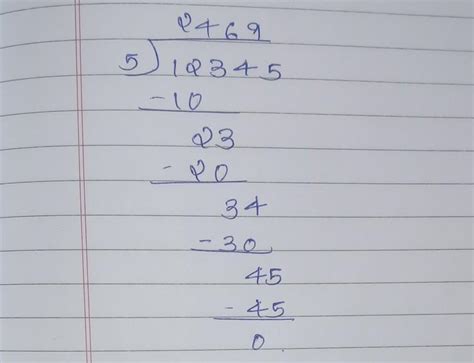 2469
5)12345
-10
23
-20
34
-30
45
-45
0